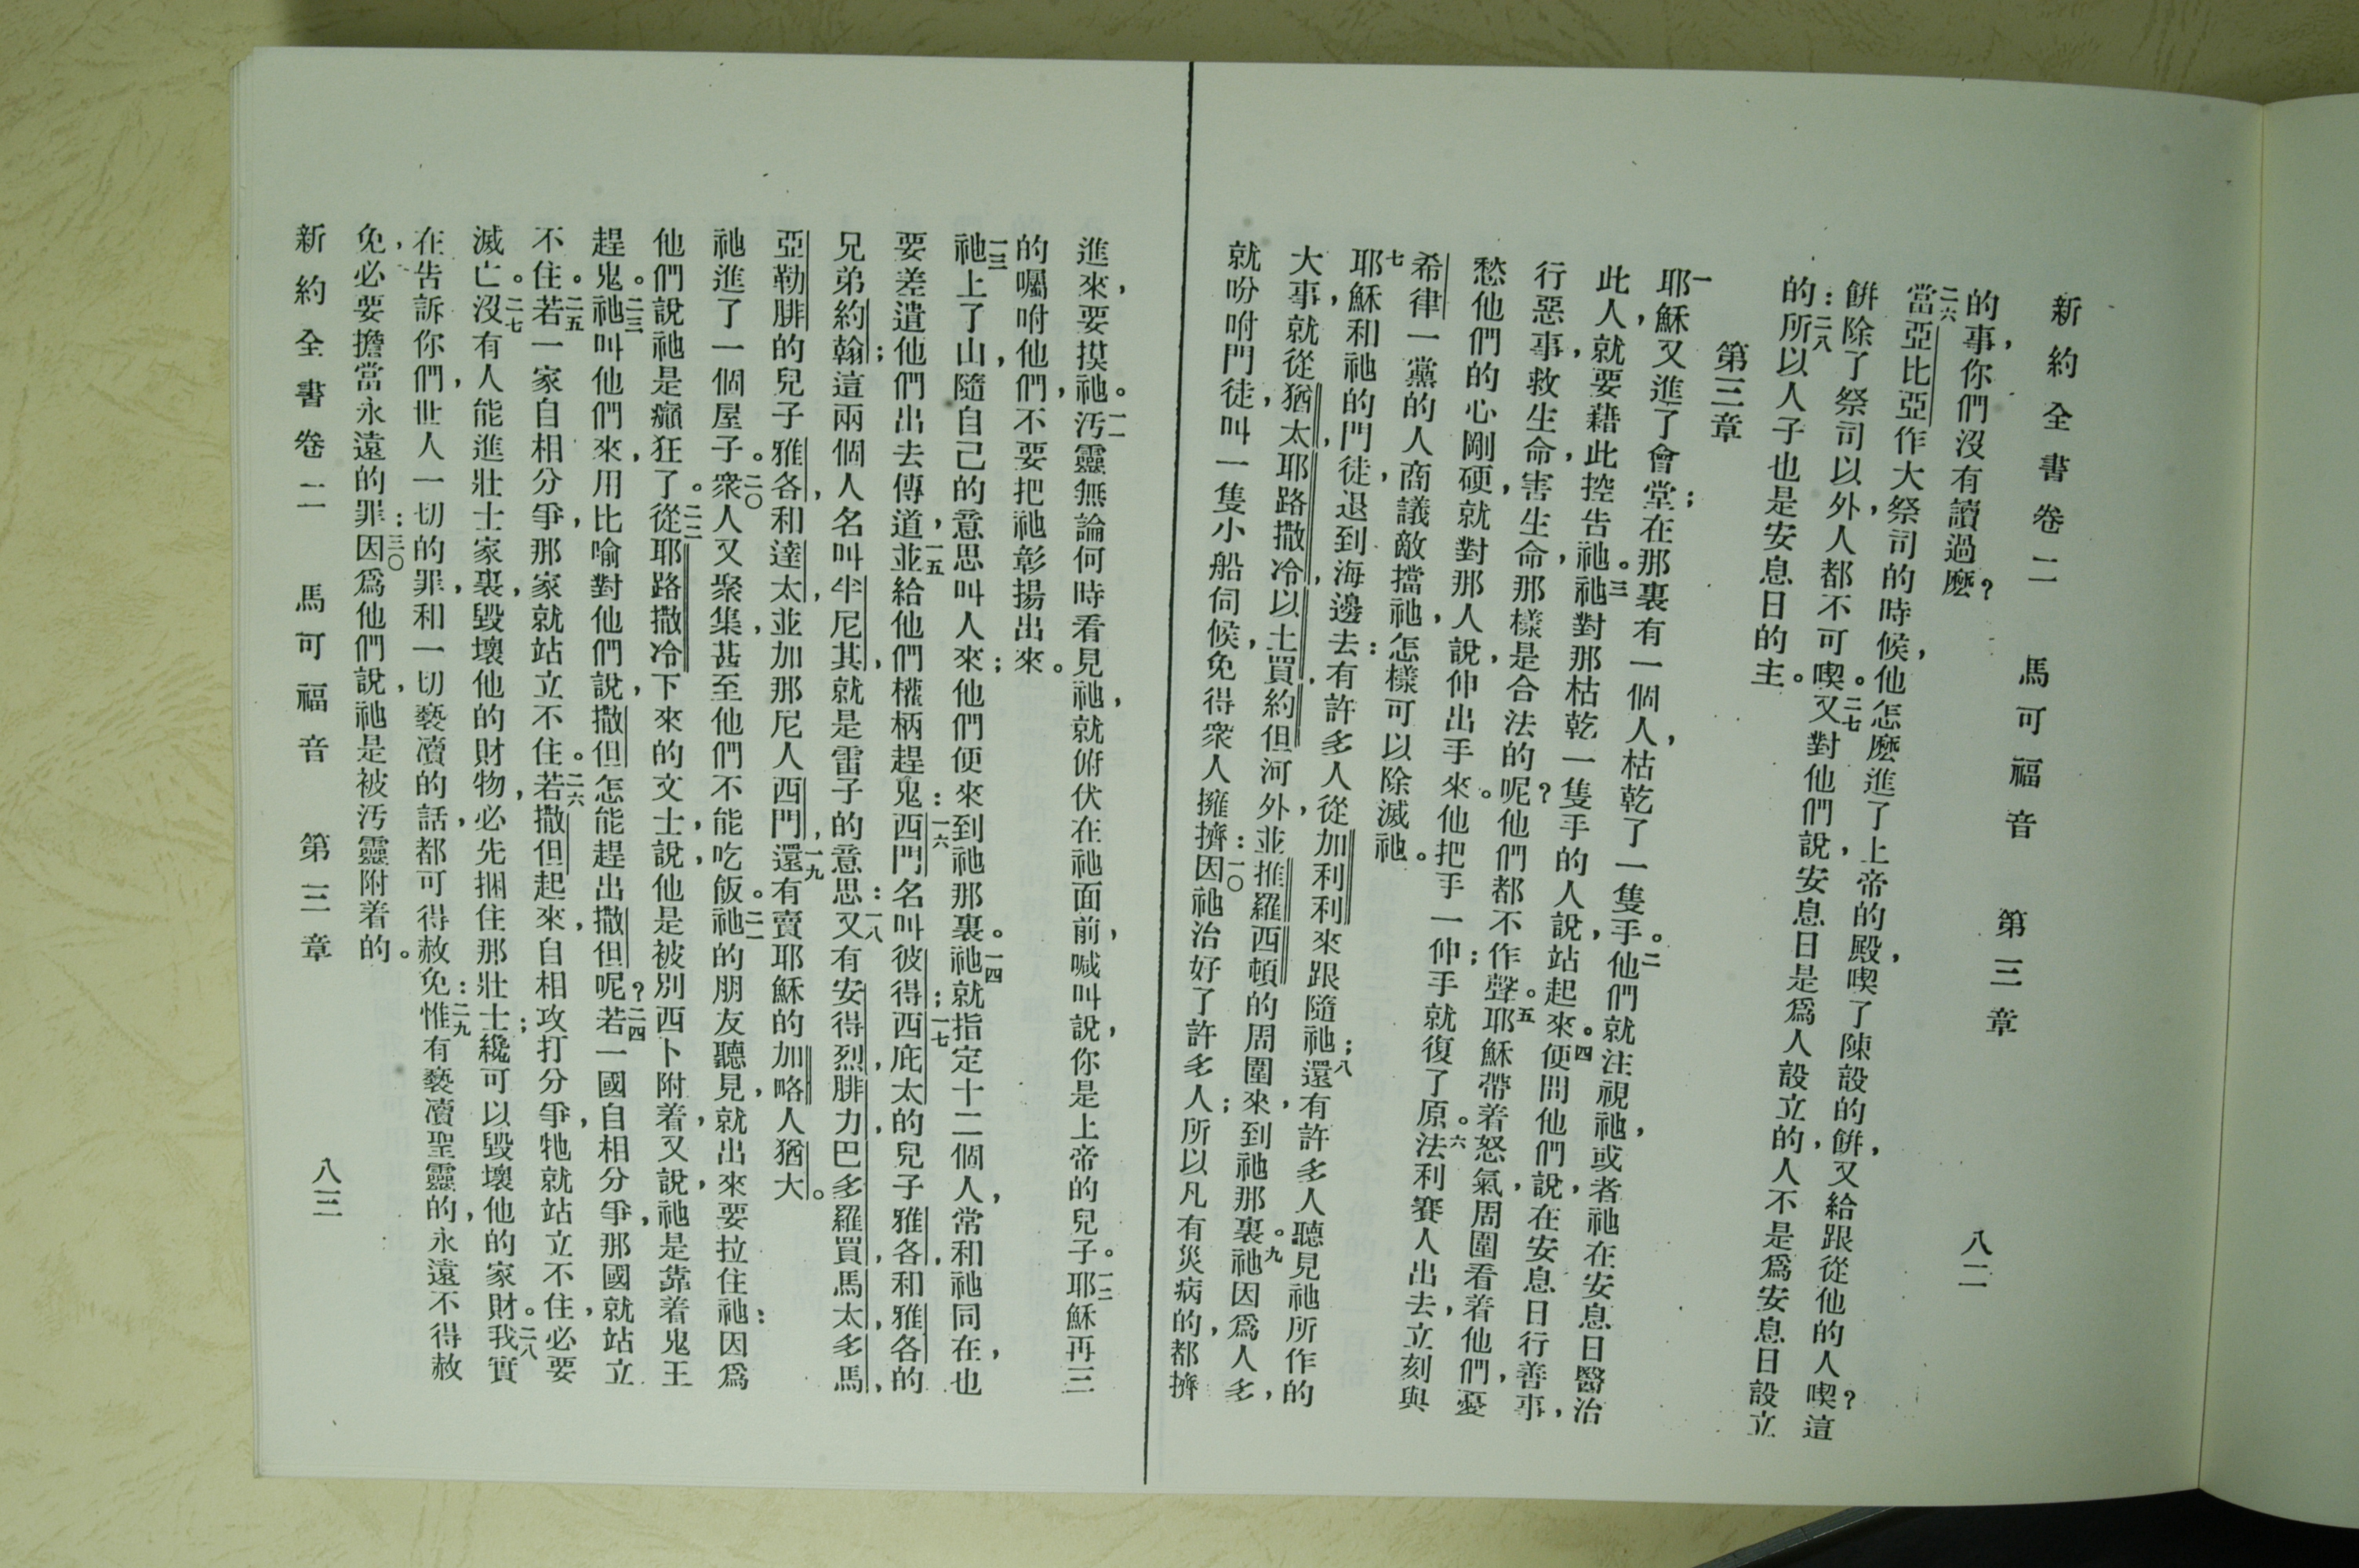 新約全書卷二　馬可福音　第三章　八二
的事，你們沒有讀過麼？
二六當亞比亞作大祭司的時候，他怎麼進了上帝的殿，喫了陳設的餠，又給跟從他的人喫？這
餠除了祭司以外，人都不可喫。二七又對他們說，安息日是爲人設立的，人不是爲安息日設立
的：二八所以人子也是安息日的主。
第三章
一耶穌又進了會堂；在那裏有一個人，枯乾了一隻手。二他們就注視祂，或者祂在安息日醫治
此人，就要藉此控告祂。三祂對那枯乾一隻手的人說，站起來。四便問他們說，在安息日行善事，
行惡事，救生命，害生命，那樣是合法的呢？他們都不作聲。五耶穌帶着怒氣，周圍看着他們，憂
愁他們的心剛硬，就對那人說，伸出手來。他把手一伸；手就復了原。六法利賽人出去，立刻與
希律一黨的人商議敵擋祂，怎樣可以除滅祂。
七耶穌和祂的門徒，退到海邊去：有許多人從加利利來跟隨祂；八還有許多人聽見祂所作的
大事，就從猶太，耶路撒冷，以土買，約但河外，並推羅西頓的周圍來，到祂那裏。九祂因爲人多，
就吩咐門徒，叫一隻小船伺候，免得衆人擁擠：一〇因祂治好了許多人；所以凡有災病的，都擠
進來，要摸祂。一一汚靈無論何時看見祂，就俯伏在祂面前，喊叫說，你是上帝的兒子。一二耶穌再三
的囑咐他們，不要把祂彰揚出來。
一三祂上了山，隨自己的意思叫人來；他們便來到祂那裏。一四祂就指定十二個人，常和祂同在，也
要差遣他們出去傳道，一五並給他們權柄趕鬼：一六西門名叫彼得；一七西庇太的兒子雅各，和雅各的
兄弟約翰；這兩個人名叫半尼其，就是雷子的意思：一八又有安得烈，腓力，巴多羅買，馬太，多馬，
亞勒腓的兒子雅各，和達太，並加那尼人西門，一九還有賣耶穌的加略人猶大。
祂進了一個屋子。二〇衆人又聚集，甚至他們不能吃飯。二一祂的朋友聽見，就出來要拉住祂：因爲
他們說祂是癲狂了。二二從耶路撒冷下來的文士，說，他是被別西卜附着，又說，祂是靠着鬼王
趕鬼。二三祂叫他們來，用比喻對他們說，撒但怎能趕出撒但呢？二四若一國自相分爭，那國就站立
不住。二五若一家自相分爭，那家就站立不住。二六若撒但起來，自相攻打分爭，牠就站立不住，必要
滅亡。二七沒有人能進壯士家裏，毀壞他的財物，必先捆住那壯士；纔可以毀壞他的家財。二八我實
在告訴你們，世人一切的罪，和一切褻瀆的話，都可得赦免：二九惟有褻瀆聖靈的，永遠不得赦
免，必要擔當永遠的罪：三〇因爲他們說，祂是被汚靈附着的。
新約全書卷二　馬可福音　第三章　八三